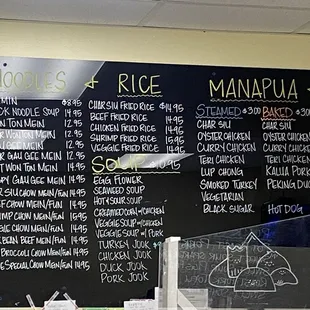 NOODLES & RICE
MANAPUA &
MIN $8.95
NOODLE SOUP 14.95
WON TON MEIN 12.95
WON TON MEIN 14.95
GAU GEE MEIN 14.95
WONT MEIN 14.95
GAU GEE MEIN 14.95
CHOW MEIN/FUN 14.95
CHOW MEIN/FUN 14.95
CHOW MEIN/FUN 14.95
CHOW MEIN/FUN 14.95
BEAN BEEF MEIN/FUN 14.95
BROCCOLI CHOW MEIN/FUN 14.95
SPECIAL CHOW MEIN/FUN 14.95
CHAR SIU FRIED RICE $14.95
BEEF FRIED RICE 14.95
CHICKEN FRIED RICE 14.95
SHRIMP FRIED RICE 14.95
VEGGIE FRIED RICE 14.95
SOUP
EGG FLOWER
SEAWEED SOUP
HOT & SOUR SOUP
CREAMED CORN w/CHICKEN
VEGGIE SOUP w/CHICKEN
VEGGIE SOUP w/PORK
TURKEY JOOK
CHICKEN JOOK
DUCK JOOK
PORK JOOK
STEAMED $3.00
CHAR SIU
OYSTER CHICKEN
CURRY CHICKEN
TERI CHICKEN
LUP CHONG
SMOKED TURKEY
VEGETARIAN
BLACK SUGAR
BAKED
CHAR SIU
OYSTER CHICKEN
CURRY CHICKEN
TERI CHICKEN
KALUA PORK
PEKING DUCK
HOT DOG